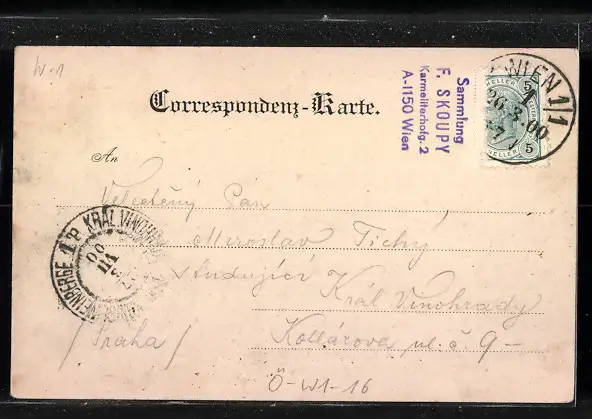 W-1
Correspondenz-Karte.
Sammlung
F. SKOUPY
Karmeliterhofg. 2
A-1150 Wien
WIEN 1/1
26.3.00
5
HELLER
5
An
Velectěný Pán
Miroslav Tichý
studující
Král Vinohrady
Kollárova ul. č. 9-
/Praha/
KRÁL. VINOHRADY
WEINBERGE 1
00
III
Ö-W1-16